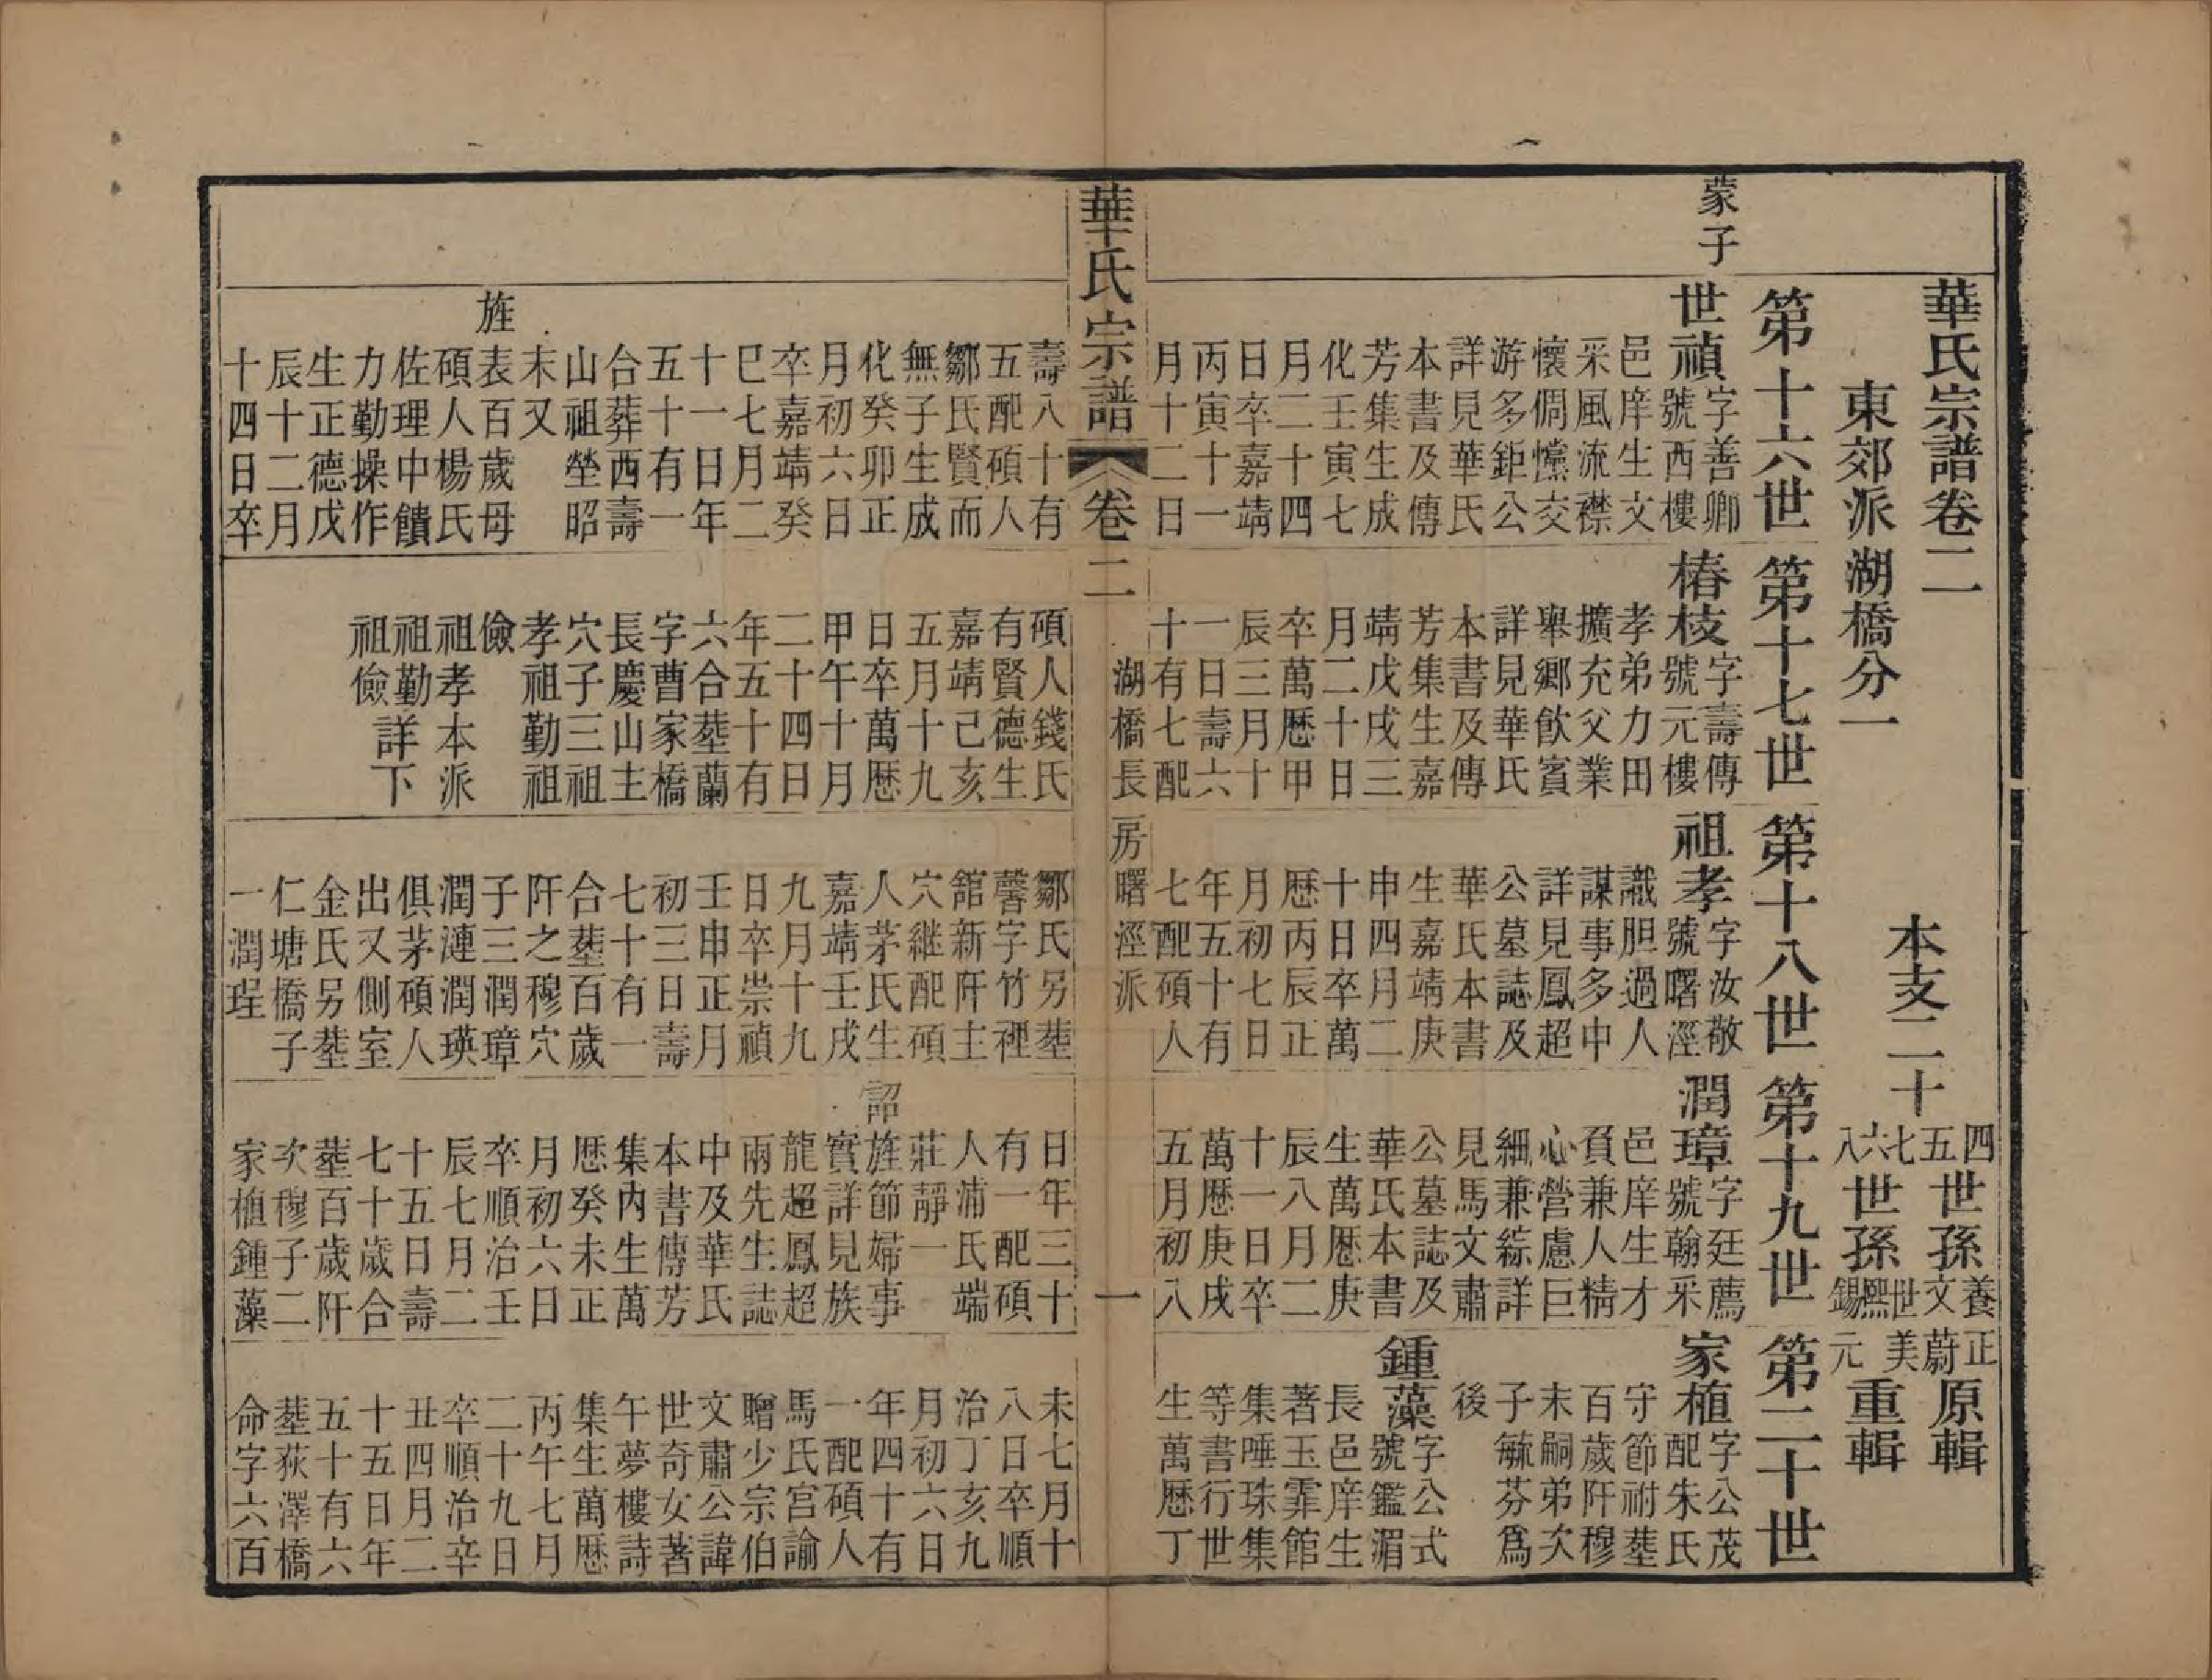 華氏宗譜卷二
東郊派 湖橋分一
本支二十
四五世孫養正文蔚原輯
七六八世孫世美熙錫元重輯
第十六世
第十七世
第十八世
第十九世
第二十世
蒙子
世禎
字善卿
號西樓
邑庠生文
采風流襟
懷倜儻交
游多鉅公
詳見華氏
本書及傳
芳集生成
化壬寅七
月二十四
日卒嘉靖
丙寅十一
月十二日
壽八十有
五配碩人
鄒氏賢而
無子生成
化癸卯正
月初六日
卒嘉靖癸
巳七月二
十一日年
五十有一
合葬西壽
山祖塋昭
末又
旌
表百歲母
碩人楊氏
佐理中饋
力勤操作
生正德戊
辰十二月
十四日卒
椿枝
字壽傳
號元樓
孝弟力田
擴充父業
舉鄉飲賓
詳見華氏
本書及傳
芳集生嘉
靖戊戌三
月二十日
卒萬歷甲
辰三月十
一日壽六
十有七配
湖橋長
房
曙涇派
碩人錢氏
有賢德生
嘉靖己亥
五月十九
日卒萬歷
甲午十月
二十四日
年五十有
六合塟蘭
字曹家橋
長慶山主
穴子三祖
孝祖勤祖
儉
祖孝本派
祖勤詳
祖儉 下
祖孝
字汝敬
號曙涇
識胆過人
謀事多中
詳見鳳超
公墓誌及
華氏本書
生嘉靖庚
申四月二
十日卒萬
歷丙辰正
月初七日
年五十有
七配碩人
鄒氏另塟
馨字竹裡
舘新阡主
穴継配碩
人茅氏生
嘉靖壬戌
九月十九
日卒崇禎
壬申正月
初三日壽
七十有一
合塟百歲
阡之穆穴
子三潤璋
潤漣潤瑛
俱茅碩人
出又側室
金氏另塟
仁塘橋子
一潤珵
潤璋
字廷薦
號翰采
邑庠生才
負兼人精
心營慮巨
細兼綜詳
見馬文肅
公墓誌及
華氏本書
生萬歷庚
辰八月二
十一日卒
萬歷庚戌
五月初八
日年三十
有一配碩
人浦氏端
莊靜一
詔
旌節婦事
實詳見族
龍超鳳超
兩先生誌
中及華氏
本書傳芳
集內生萬
歷癸未正
月初六日
卒順治壬
辰七月二
十五日壽
七十歲合
塟百歲阡
次穆子二
家植鍾藻
家植
字公茂
配朱氏
守節祔塟
百歲阡穆
末嗣弟次
子毓芬爲
後
鍾藻
字公式
號鑑湄
長邑庠生
著玉霏館
集唾珠集
等書行世
生萬歷丁
未七月十
八日卒順
治丁亥九
月初六日
年四十有
一配碩人
馬氏宮諭
贈少宗伯
文肅公諱
世奇女著
午夢樓詩
集生萬歷
丙午七月
二十九日
卒順治辛
丑四月二
十五日年
五十有六
塟荻澤橋
命字六百
華氏宗譜
卷二
一